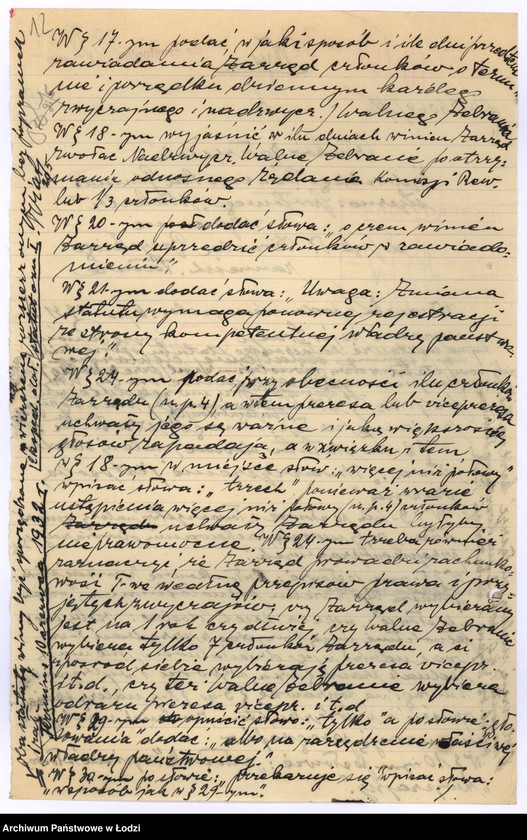 12
W § 17-ym podać w jaki sposób i ile dni przedtem
zawiadamia Zarząd członków o termi-
nie i porządku dziennym każdego
zwyczajnego i nadzwycz. Walnego Zebrania
W § 18-ym wyjaśnić w ilu dniach winien Zarząd
zwołać Nadzwycz. Walne Zebranie po otrzy-
maniu odnośnego żądania Komisji Rew.
lub 1/3 członków.
W § 20-ym dodać słowa: "o czem winien
Zarząd uprzedzić członków w zawiado-
mieniu"
W § 21-ym dodać słowa: "Uwaga: Zmiana
statutu wymaga ponownej rejestracji
ze strony kompetentnej władzy państwo-
wej."
W § 24-ym podać przy obecności ilu członków
Zarządu (n.p. 4), a w tem prezesa lub viceprezesa
uchwały jego są ważne i jaką większością
głosów zapadają, a w związku z tem
w § 18-ym w miejsce słów: "więcej niż połowy"
wpisać słowa: "trzech" ponieważ w razie
ustąpienia więcej niż połowy (n.p. 4) członków
Zarządu uchwały Zarządu byłyby
nieprawomocne. W § 24-ym trzeba również
zaznaczyć, że Zarząd prowadzi rachunko-
wość T-wa według przepisów prawa i przy-
jętych zwyczajów, czy Zarząd wybierany
jest na 1 rok czy dłużej, czy Walne Zebranie
wybiera tylko 7 członków Zarządu, a ci
z pośród siebie wybierają prezesa vicepr.
i t.d., czy też Walne Zebranie wybiera
odrazu prezesa vicepr. i t.d
W § 29-ym opuścić słowo: "tylko" a po słowie: "gło-
sowania" dodać: "albo na zarządzenie właściwej
władzy państwowej."
W § 30-ym po słowie: "przekazuje się" wpisać słowa:
"w sposób jak w § 29-ym".
Ubiegłe
Archiwum Państwowe w Łodzi